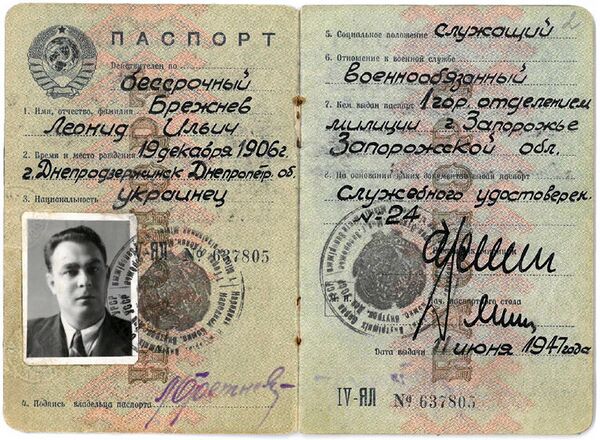 ПАСПОРТ
Действителен по
бессрочный
Брежнев
1. Имя, отчество, фамилия
Леонид Ильич
2. Время и место рождения 19 декабря 1906г.
г. Днепродзержинск Днепропетр. об.
3. Национальность украинец
IV-ЯЛ № 637805
4. Подпись владельца паспорта
2
5. Социальное положение служащий
6. Отношение к военной службе
военнообязанный
7. Кем выдан паспорт 1 гор. отделением
милиции г. Запорожье
Запорожской обл.
8. На основании каких документов выдан паспорт
служебного удостоверен.
№24
Нач. паспортного стола
Дата выдачи 11 июня 1947 года
IV-ЯЛ № 637805